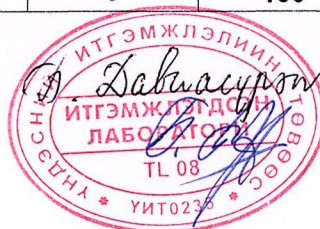 ҮНДЭСНИЙ ИТГЭМЖЛЭЛИЙН ТӨВӨӨС
ИТГЭМЖЛЭГДСЭН
ЛАБОРАТОРИ
TL 08
ҮИТ0235